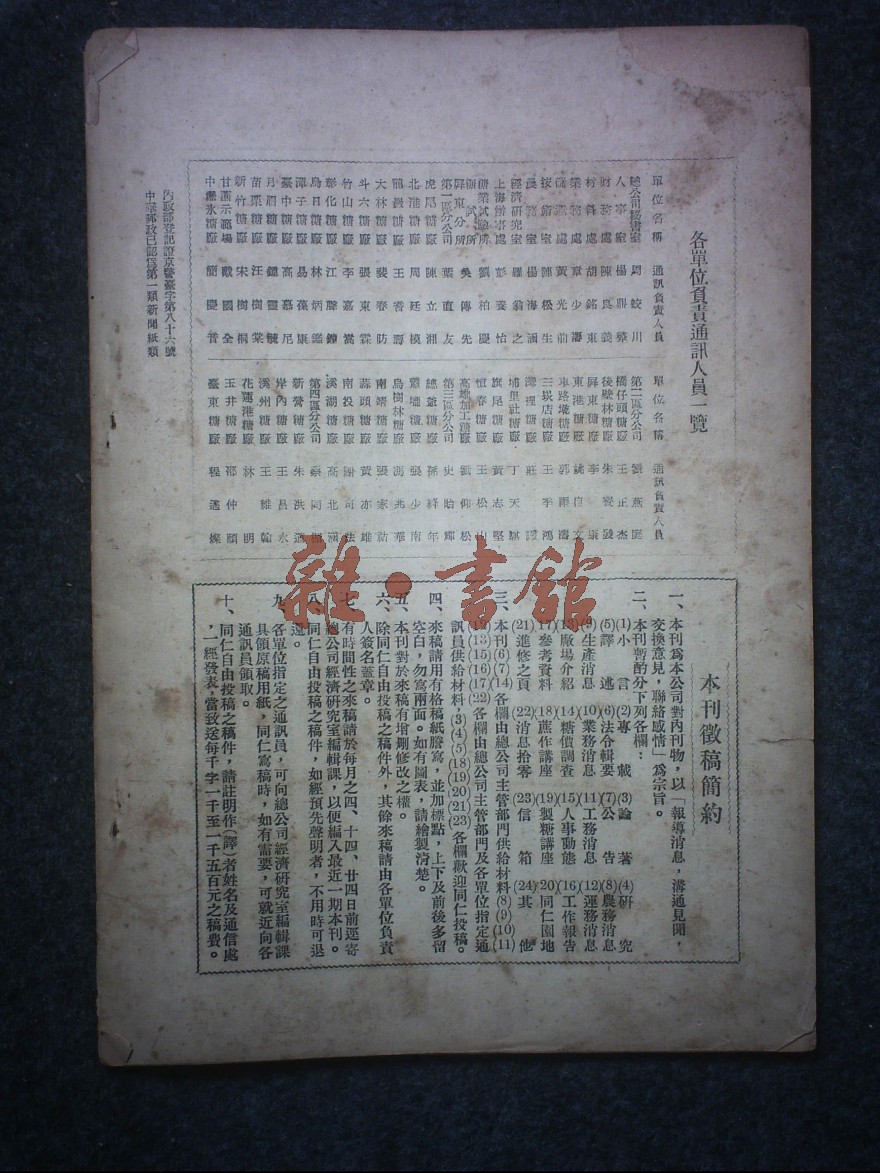 各單位負責通訊人員一覽
單位名稱 通訊負責人員
總公司秘書室 周蛟川
人事室 楊鼎
財務處 陳良義
材料處 胡銘東
業務處 章少
農務處 黃光前
技術室 陳松生
長務室 楊海涵
經濟研究室 羅翁之
上海辦事處 彭養怡
糖業試驗所 劉柏慶
屏東分所 吳傳先
第一區分公司 葉直友
虎尾糖廠 陳立湘
北港糖廠 周廷
龍巖糖廠 王者壽
大林糖廠 裴春防
斗六糖廠 張東霖
竹山糖廠 李嘉嵩
彰化糖廠 江聯
烏日糖廠 林炳鑑
潭子糖廠 易葆康
臺中糖廠 高慕尼
月眉糖廠 鍾靈毓
苗栗糖廠 汪樹棠
新竹糖廠 宋樹桐
甘蔗示範場 戴國全
中 廠 簡慶
單位名稱 通訊負責人員
第二區分公司 劉燕庭
橋仔頭糖廠 王正杰
後壁林糖廠 朱寶
屏東糖廠 李康
東港糖廠 姚自文
車路墘糖廠 郭爾濤
三崁店糖廠 王季鴻
灣裡糖廠 莊
埔里社糖廠 丁天
旗尾糖廠 黃志堅
恆春糖廠 王松山
高雄加工糖廠 劉仰松
第三區分公司 史貽
總爺糖廠 孫鋒年
蕭壠糖廠 張少南
烏樹林糖廠 馮兆華
南靖糖廠 張家
蒜頭糖廠 黃亦雄
南投糖廠 謝可法
溪湖糖廠 高北
第四區分公司 蔡同
新營糖廠 朱洪
岸內糖廠 王昌永
溪州糖廠 王雄翰
花蓮港糖廠 林明
玉井糖廠 邵仲頤
臺東糖廠 程邁燦
內政部登記證京警臺字第八十六號
中華郵政已認爲第一類新聞紙類
本刊徵稿簡約
一、本刊爲本公司對內刊物，以「報導消息，溝通見聞，
交換意見，聯絡感情」爲宗旨。
二、本刊暫酌分下列各欄：
(1)小言 (2)專載 (3)論著 (4)研究
(5)譯述 (6)法令輯要 (7)公告 (8)農務消息
(9)生產消息 (10)業務消息 (11)工務消息 (12)運務消息
(13)廠場介紹 (14)糖價調查 (15)人事動態 (16)工作報告
(17)參考資料 (18)蔗作講座 (19)製糖講座 (20)同仁園地
(21)進修之頁 (22)消息拾零 (23)信箱 (24)其他
三、本刊(6)(7)(14)各欄由總公司主管部門供給材料(8)(9)(10)(11)
(12)(13)(15)(16)(17)(22)各欄由總公司主管部門及各單位指定通
訊員供給材料(3)(4)(5)(18)(19)(20)(21)(23)各欄歡迎同仁投稿。
四、來稿請用有格稿紙謄寫，並加標點，上下及前後多留
空白，勿寫兩面。如有圖表，請繪製清楚。
五、本刊對於來稿有增刪修改之權。
六、除同仁自由投稿之稿件外，其餘來稿請由各單位負責
人簽名蓋章。
七、有時間性之來稿請於每月之四、十四、廿四日前逕寄
總公司經濟研究室編輯課，以便編入最近一期本刊。
八、同仁自由投稿之稿件，如經預先聲明者，不用時可退
還。
九、各單位指定之通訊員，可向總公司經濟研究室編輯課
具領原稿用紙，同仁寫稿時，如有需要，可就近向各
通訊員領取。
十、同仁自由投稿之稿件，請註明作(譯)者姓名及通信處
，一經發表，當致送每千字一千至一千五百元之稿費。
雜·書館